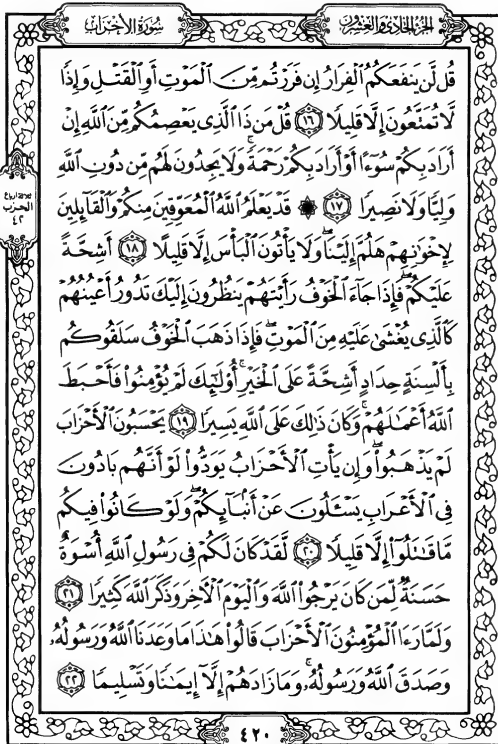 الجزء الحادي والعشرون
سورة الأحزاب
قُل لَّن يَنفَعَكُمُ ٱلْفِرَارُ إِن فَرَرْتُم مِّنَ ٱلْمَوْتِ أَوِ ٱلْقَتْلِ وَإِذًا
لَّا تُمَتَّعُونَ إِلَّا قَلِيلًا ١٦ قُلْ مَن ذَا ٱلَّذِى يَعْصِمُكُم مِّنَ ٱللَّهِ إِنْ
أَرَادَ بِكُمْ سُوٓءًا أَوْ أَرَادَ بِكُمْ رَحْمَةً ۚ وَلَا يَجِدُونَ لَهُم مِّن دُونِ ٱللَّهِ
وَلِيًّا وَلَا نَصِيرًا ١٧ ۞ قَدْ يَعْلَمُ ٱللَّهُ ٱلْمُعَوِّقِينَ مِنكُمْ وَٱلْقَآئِلِينَ
لِإِخْوَٰنِهِمْ هَلُمَّ إِلَيْنَا ۖ وَلَا يَأْتُونَ ٱلْبَأْسَ إِلَّا قَلِيلًا ١٨ أَشِحَّةً
عَلَيْكُمْ ۖ فَإِذَا جَآءَ ٱلْخَوْفُ رَأَيْتَهُمْ يَنظُرُونَ إِلَيْكَ تَدُورُ أَعْيُنُهُمْ
كَٱلَّذِى يُغْشَىٰ عَلَيْهِ مِنَ ٱلْمَوْتِ ۖ فَإِذَا ذَهَبَ ٱلْخَوْفُ سَلَقُوكُم
بِأَلْسِنَةٍ حِدَادٍ أَشِحَّةً عَلَى ٱلْخَيْرِ ۚ أُو۟لَٰٓئِكَ لَمْ يُؤْمِنُوا۟ فَأَحْبَطَ
ٱللَّهُ أَعْمَٰلَهُمْ ۚ وَكَانَ ذَٰلِكَ عَلَى ٱللَّهِ يَسِيرًا ١٩ يَحْسَبُونَ ٱلْأَحْزَابَ
لَمْ يَذْهَبُوا۟ ۖ وَإِن يَأْتِ ٱلْأَحْزَابُ يَوَدُّوا۟ لَوْ أَنَّهُم بَادُونَ
فِى ٱلْأَعْرَابِ يَسْـَٔلُونَ عَنْ أَنۢبَآئِكُمْ ۖ وَلَوْ كَانُوا۟ فِيكُم
مَّا قَٰتَلُوٓا۟ إِلَّا قَلِيلًا ٢٠ لَّقَدْ كَانَ لَكُمْ فِى رَسُولِ ٱللَّهِ أُسْوَةٌ
حَسَنَةٌ لِّمَن كَانَ يَرْجُوا۟ ٱللَّهَ وَٱلْيَوْمَ ٱلْءَاخِرَ وَذَكَرَ ٱللَّهَ كَثِيرًا ٢١
وَلَمَّا رَءَا ٱلْمُؤْمِنُونَ ٱلْأَحْزَابَ قَالُوا۟ هَٰذَا مَا وَعَدَنَا ٱللَّهُ وَرَسُولُهُۥ
وَصَدَقَ ٱللَّهُ وَرَسُولُهُۥ ۚ وَمَا زَادَهُمْ إِلَّآ إِيمَٰنًا وَتَسْلِيمًا ٢٢
الحزب
٤٢
٤٢٠